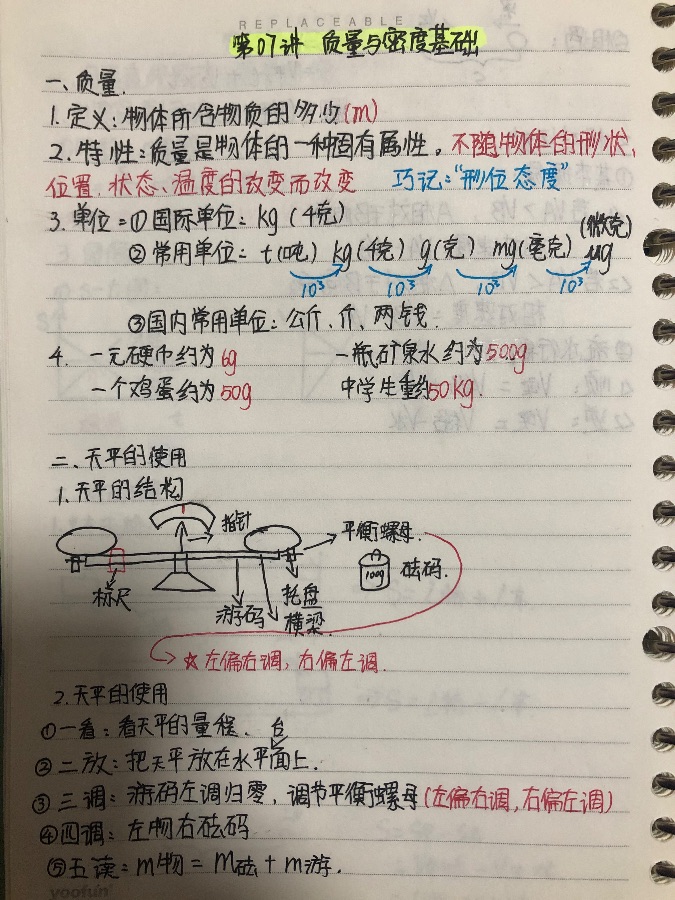 REPLACEABLE
第07讲 质量与密度基础
一、质量.
1.定义:物体所含物质的多少(m)
2.特性:质量是物体的一种固有属性。不随物体的形状、
位置、状态、温度的改变而改变 巧记:"形位态度"
3.单位=①国际单位:kg(千克)
(微克)
②常用单位:t(吨) kg(千克) g(克) mg(毫克) μg
10³ 10³ 10³ 10³
③国内常用单位:公斤、斤、两与钱.
4. 一元硬币约为6g 一瓶矿泉水约为500g
一个鸡蛋约为50g 中学生重约50Kg.
二、天平的使用
1.天平的结构
指针
平衡螺母.
100g 砝码.
标尺
游码
托盘
横梁.
→☆左偏右调,右偏左调.
2.天平的使用
①一看:看天平的量程.
台
②二放:把天平放在水平面上.
③三调:游码左调归零,调节平衡螺母(左偏右调,右偏左调)
④四调:左物右砝码
⑤五读:m物=m砝+m游.
yoofun